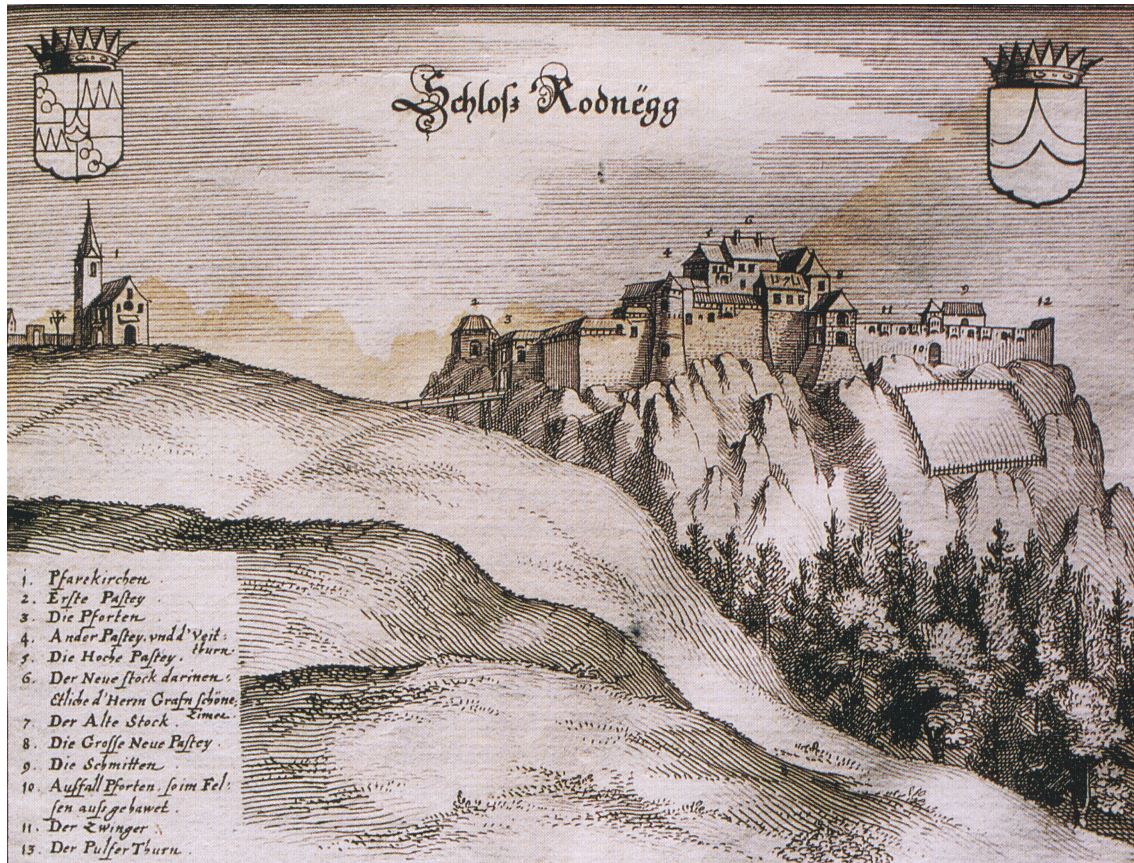 Schloſz Rodnëgg
1
2
3
4
5
6
7
8
9
10
11
12
1. Pfarekirchen.
2. Erſte Paſtey.
3. Die Pforten.
4. Ander Paſtey, vnd d' Veit:
thurn.
5. Die Hoche Paſtey.
6. Der Neue ſtock darinen:
Etliche d' Herrn Grafn ſchöne
Zimer
7. Der Alte Stock.
8. Die Groſſe Neue Paſtey.
9. Die Schmitten.
10. Auſfall Pforten, ſo im Fel:
ſen auſsgehawet.
11. Der Zwinger.
13. Der Pulfer Thurn.